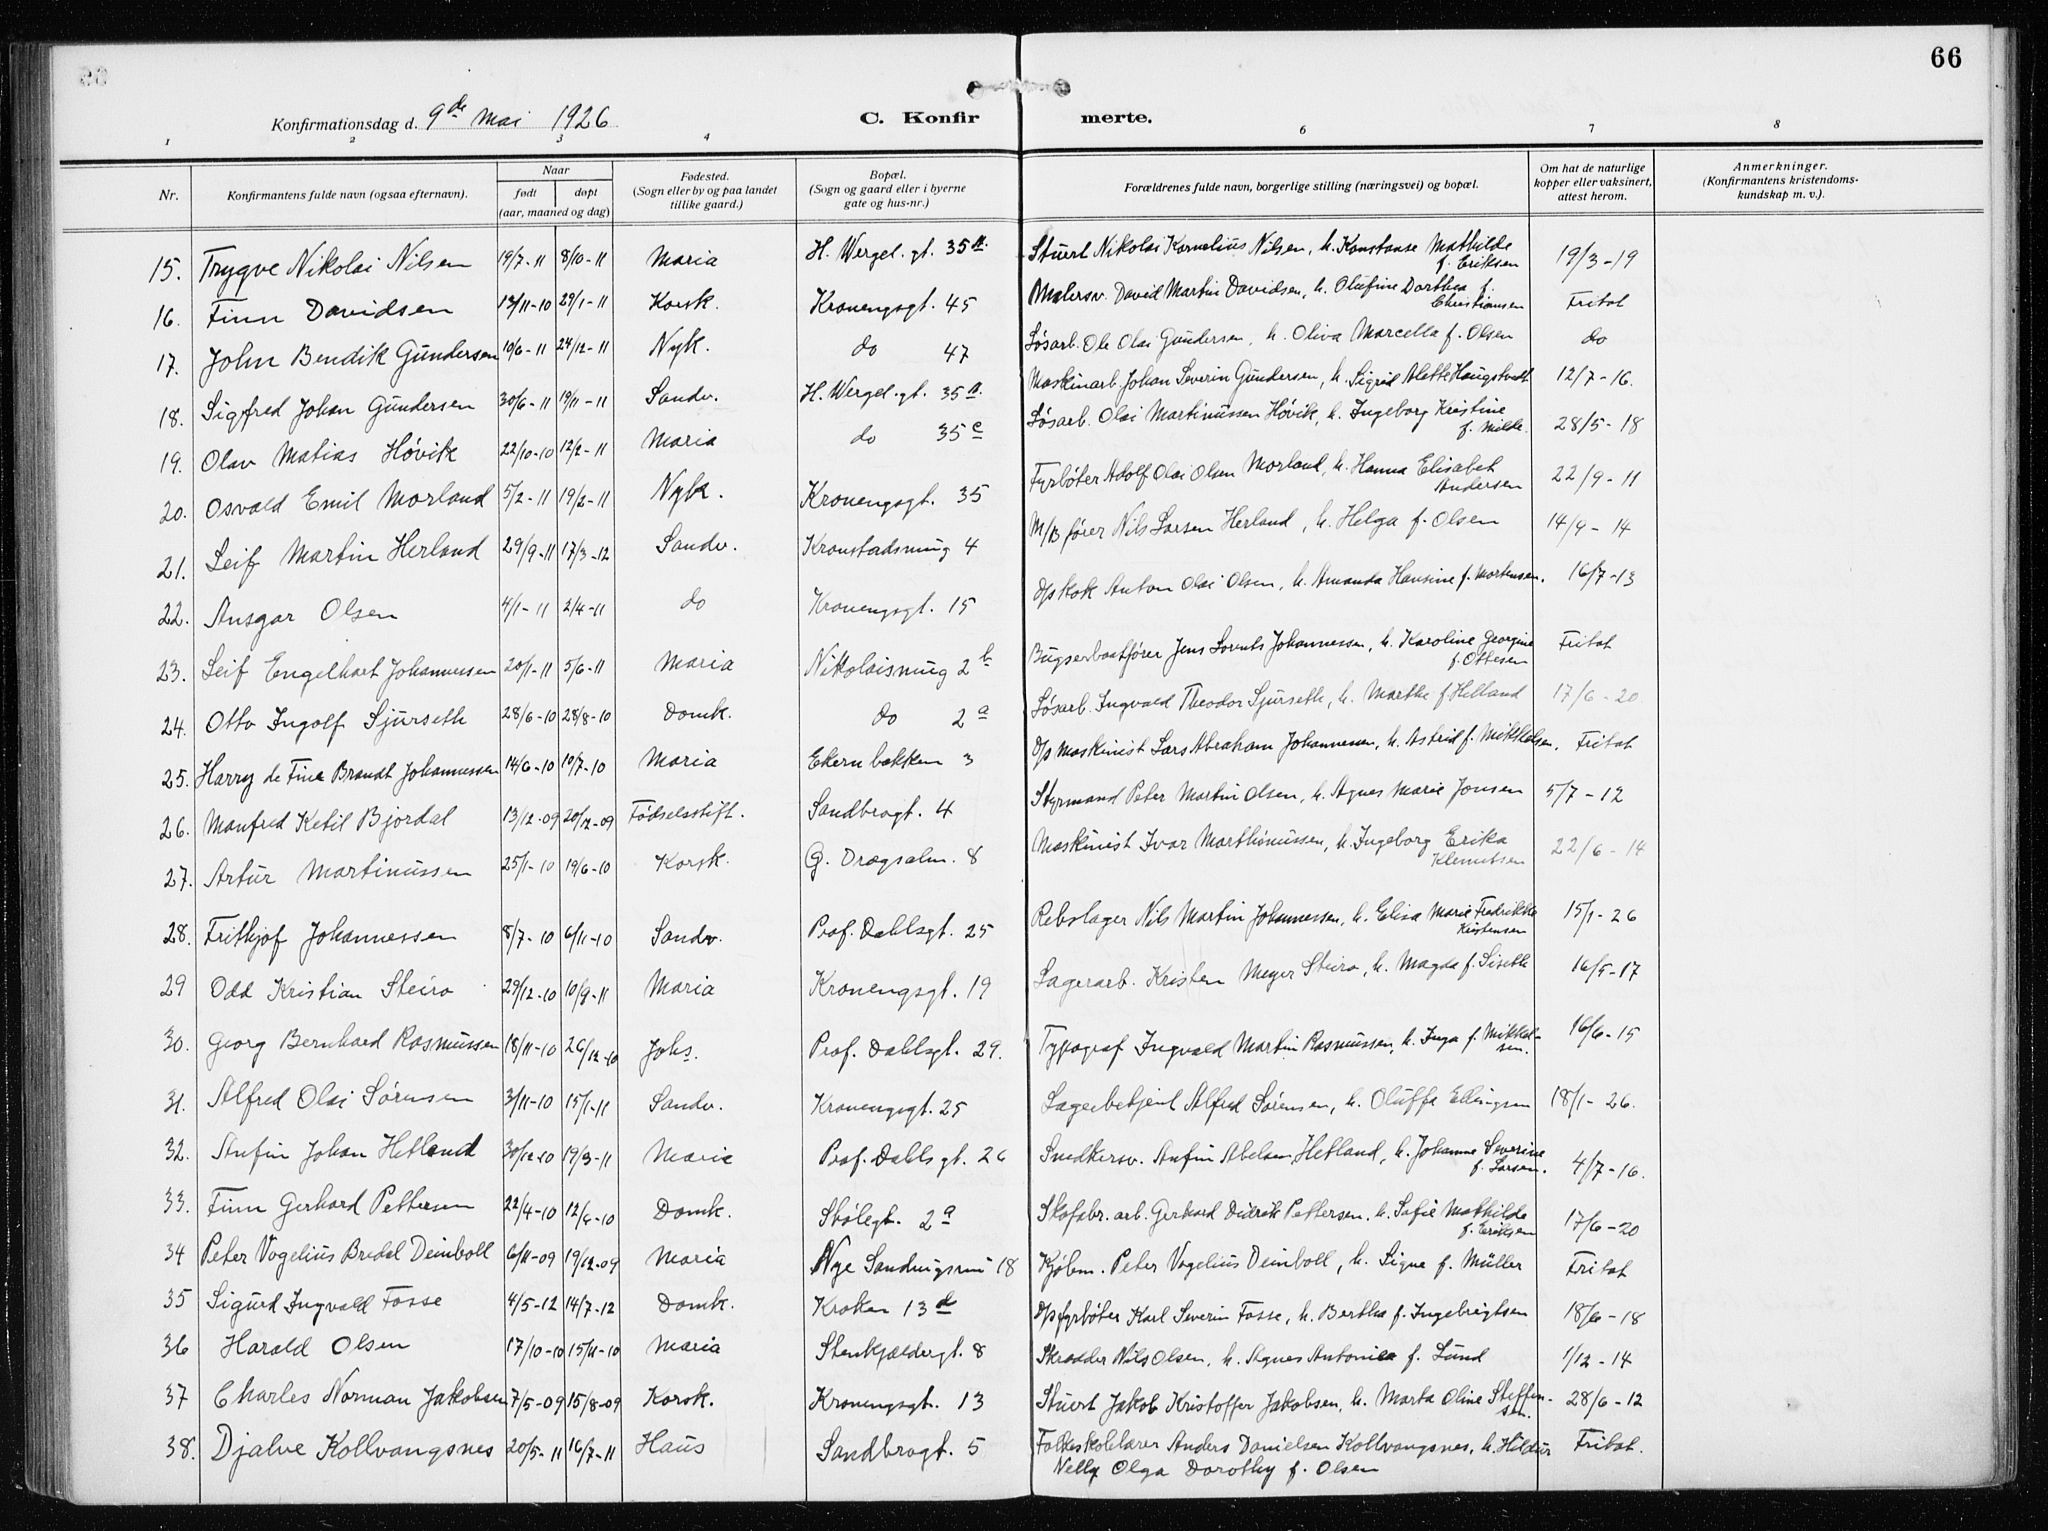 66
Konfirmationsdag d. 9de Mai 1926
C. Konfirmerte.
1 2 3 4 6 7 8
Nr. Konfirmantens fulde navn (ogsaa efternavn). Naar født døpt (aar, maaned og dag) Fødested. (Sogn eller by og paa landet tillike gaard.) Bopæl. (Sogn og gaard eller i byerne gate og hus-nr.) Forældrenes fulde navn, borgerlige stilling (næringsvei) og bopæl. Om hat de naturlige kopper eller vaksinert, attest herom. Anmerkninger. (Konfirmantens kristendoms-kundskap m. v.).
15. Trygve Nikolai Nilsen 19/7-11 8/10-11 Maria H. Wergel. gt. 35 a. Stuert Nikolai Kornelius Nilsen, h. Konstanse Mathilde f. Eriksen 19/3-19
16. Finn Davidsen 13/11-10 29/1-11 Korsk. Kronengsgt. 45 Malersv. David Martin Davidsen, h. Olufine Dorthea f. Christiansen Fritat
17. John Bendik Gundersen 10/6-11 24/12-11 Nyk. do 47 Løsarb. Ole Olai Gundersen, h. Oliva Marcella f. Olsen do
18. Sigfred Johan Gundersen 30/6-11 19/11-11 Sandv. H. Wergel. gt. 35 a. Maskinarb. Johan Severin Gundersen, h. Sigrid Alette Haugstvedt 12/7-16.
19. Olav Matias Høvik 22/10-10 12/2-11 Maria do 35 c Løsarb. Olai Martinussen Høvik, h. Ingeborg Kristine f. Milde. 28/5-18
20. Osvald Emil Morland 5/2-11 19/2-11 Nyk. Kronengsgt. 35 Fyrbøter Adolf Olai Olsen Morland, h. Hanna Elisabet Andersen 22/9-11
21. Leif Martin Herland 29/9-11 17/3-12 Sandv. Kronstadsmug 4 M/B fører Nils Larsen Herland, h. Helga f. Olsen 14/9-14
22. Ansgar Olsen 4/1-11 2/4-11 do Kronengsgt. 15 D/s kok Anton Olai Olsen, h. Amanda Hansine f. Mortensen. 16/7-13
23. Leif Engelhart Johannessen 20/1-11 5/6-11 Maria Nikolaismug 2 b Bugserbaatfører Jens Lorents Johannessen, h. Karoline Georgine f. Ottesen Fritat
24. Otto Ingolf Sjurseth 28/6-10 28/8-10 Domk. do 2 a Løsarb. Ingvald Theodor Sjurseth, h. Marthe f. Helland 17/6-20
25. Harry de Fine Brandt Johannessen 14/6-10 10/7-10 Maria Ekernbakken 3 D/s maskinist Lars Abraham Johannessen, h. Astrid f. Mikkelsen. Fritat
26. Manfred Ketil Bjordal 13/12-09 20/12-09 Fødselsstift. Sandbrogt. 4 Styrmand Peter Martin Olsen, h. Agnes Marie Jonsen 5/7-12
27. Artur Martinussen 25/1-10 19/6-10 Korsk. G. Dragsalm. 8 Maskinist Ivar Marthinussen, h. Ingeborg Erika Klemetsen 22/6-14
28. Frithjof Johannessen 8/7-10 6/11-10 Sandv. Prof. Dahlsgt. 25 Rebslager Nils Martin Johannessen, h. Elisa Marie Fredrikke Kristensen 15/1-26
29 Odd Kristian Steiro 29/12-10 10/9-11 Maria Kronengsgt. 19 Lagerarb. Kristen Meyer Steiro, h. Magda f. Liseth 16/5-17
30. Georg Bernhard Rasmussen 18/11-10 26/12-10 Johs. Prof. Dahlsgt. 29. Typograf Ingvald Martin Rasmussen, h. Inga f. Mikkelsen. 16/6-15
31. Alfred Olai Sørensen 3/11-10 15/1-11 Sandv. Kronengsgt. 25 Lagerbetjent Alfred Sørensen, h. Oluffa Ellingsen 18/1-26.
32. Anfin Johan Hetland 30/12-10 19/3-11 Maria Prof. Dahlsgt. 26 Snedkersv. Anfin Abelsen Hetland, h. Johanne Severine f. Larsen. 4/7-16.
33. Finn Gerhard Pettersen 22/4-10 12/6-10 Domk. Stølegt. 2 a Skofabr. arb. Gerhard Didrik Pettersen. h. Sofie Mathilde f. Eriksen 17/6-20
34 Peter Vogelius Bredal Deinboll 6/11-09 19/12-09 Maria Nye Sandvigsvei 18 Kjøbm. Peter Vogelius Deinboll, h. Signe f. Müller Fritat
35 Sigurd Ingvald Fosse 4/5-12 14/7-12 Domk. Kroken 13 d D/s fyrbøter Karl Severin Fosse, h. Bertha f. Ingebrigtsen 18/6-18
36 Harald Olsen 17/10-10 15/11-10 Maria Stenkjeldergt. 8 Skrædder Nils Olsen, h. Agnes Antonia f. Lund 1/12-14
37 Charles Norman Jakobsen 7/5-09 15/8-09 Korsk. Kronengsgt. 13 Stuert Jakob Kristoffer Jakobsen, h. Marta Oline Steffensen. 28/6-12
38. Djalve Kollvangsnes 20/5-11 16/7-11 Haus Sandbrogt. 5 Folkeskolelærer Anders Danielsen Kollvangsnes, h. Hildur Nelly Olga Dorothy f. Olsen Fritat.